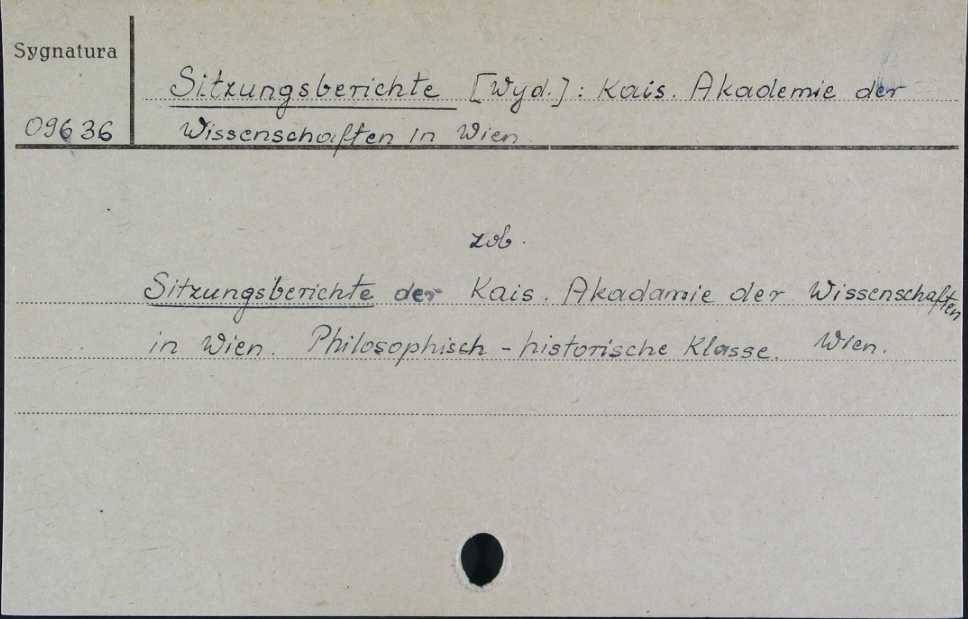 Sygnatura
09636
Sitzungsberichte [Wyd.] : Kais. Akademie der
Wissenschaften in Wien
zob.
Sitzungsberichte der Kais. Akadamie der Wissenschaften
in Wien. Philosophisch - historische Klasse. Wien.